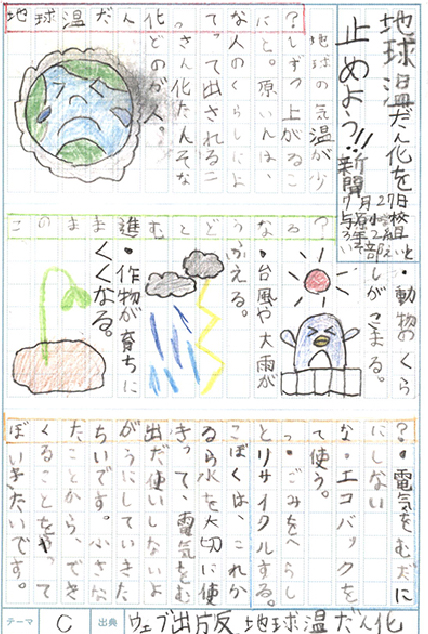 地球温だん化を
止めよう!!新聞
地球温だん化ってなに?
地球の気温が少
しずつ上がるこ
と。原いんは、
人のくらしによ
って出される二
さん化たんそな
どのガス。
このまま進むとどうなる?
・動物のくら
しがこまる。
・台風や大雨が
ふえる。
・作物が育ちに
くくなる。
ぼくたちができることってなに?
・電気をむだに
しない
・エコバックを
使う。
・ごみをへらし
リサイクルする。
ぼくは、これか
ら水を大切に使
って、電気をむ
だ使いしないよ
うにしていきた
いです。小さな
ことから、でき
ることをやって
いきたいです。
テーマ C 出典 ウェブ出版 地球温だん化